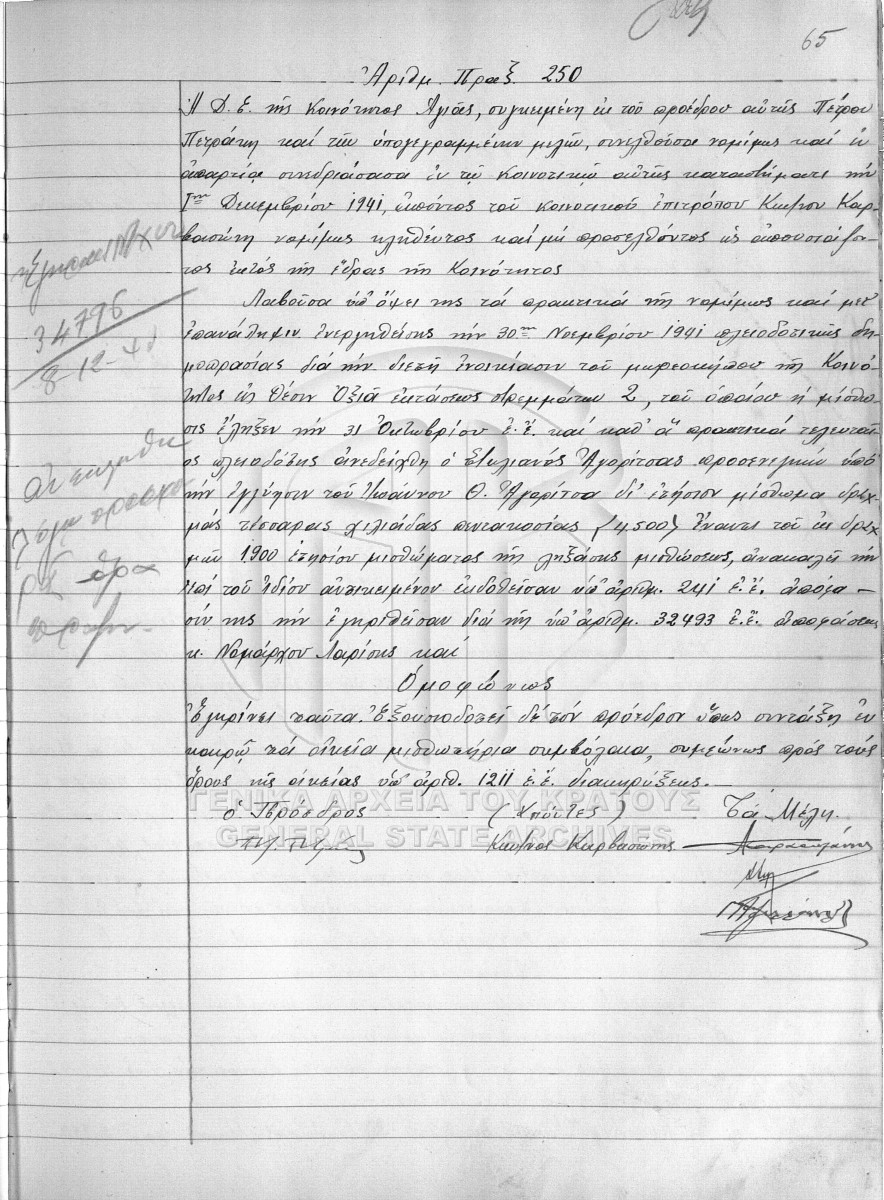 65
Ἀριθμ. Πραξ. 250
Ἡ Δ.Ε. τῆς Κοινότητος Ἁγιᾶς, συγκειμένη ἐκ τοῦ προέδρου αὐτῆς Πέτρου
Πετράκη καί τῶν ὑπογεγραμμένων μελῶν, συνελθοῦσα νομίμως καί ἐν
ἀπαρτίᾳ συνεδριάσασα ἐν τῷ Κοινοτικῷ αὐτῆς καταστήματι τήν
1ην Δεκεμβρίου 1941, ἀπόντος τοῦ κοινοτικοῦ ἐπιτρόπου Κων/νου Καρ-
βασώνη νομίμως κληθέντος καί μή προσελθόντος ὡς ἀπουσιάζον-
τος ἐκτός τῆς ἕδρας τῆς Κοινότητος
Λαβοῦσα ὑπ' ὄψει της τά πρακτικά τῆς νομίμως καί μετ'
ἐπανάληψιν ἐνεργηθείσης τήν 30ην Νοεμβρίου 1941 πλειοδοτικῆς δη-
μοπρασίας διά τήν διετῆ ἐνοικίασιν τοῦ μικροκήπου τῆς Κοινό-
τητος εἰς θέσιν Ὀξιά ἐκτάσεως στρεμμάτων 2, τοῦ ὁποίου ἡ μίσθω-
σις ἔληξεν τήν 31 Ὀκτωβρίου ἐ.ἔ. καί καθ' ἅ πρακτικά τελευταῖ-
ος πλειοδότης ἀνεδείχθη ὁ Στυλιανός Ἀγορίτσας προσενεγκών ὑπό
τήν ἐγγύησιν τοῦ Ἰωάννου Θ. Ἀγορίτσα δι' ἐτήσιον μίσθωμα δραχ-
μάς τέσσαρας χιλιάδας πεντακοσίας (4500) ἔναντι τοῦ ἐκ δραχ-
μῶν 1900 ἐτησίου μισθώματος τῆς ληξάσης μισθώσεως, ἀνακαλεῖ τήν
ἐπί τοῦ ἰδίου ἀντικειμένου ἐκδοθεῖσαν ὑπ' ἀριθμ. 241 ἐ.ἔ. ἀπόφα-
σίν της τήν ἐγκριθεῖσαν διά τῆς ὑπ' ἀριθμ. 32493 ἐ.ἔ. ἀποφάσεως
κ. Νομάρχου Λαρίσης καί
Ὁμοφώνως
Ἐγκρίνει ταῦτα. Ἐξουσιοδοτεῖ δέ τόν πρόεδρον ὅπως συντάξῃ ἐν
καιρῷ τά οἰκεῖα μισθωτήρια συμβόλαια, συμφώνως πρός τούς
ὅρους τῆς οἰκείας ὑπ' ἀριθ. 1211 ἐ.ἔ. διακηρύξεως.
Ὁ Πρόεδρος (Ἀπόντες) Τά Μέλη
Κων/νος Καρβασώνης
34796
8-12-41
ΓΕΝΙΚΑ ΑΡΧΕΙΑ ΤΟΥ ΚΡΑΤΟΥΣ
GENERAL STATE ARCHIVES